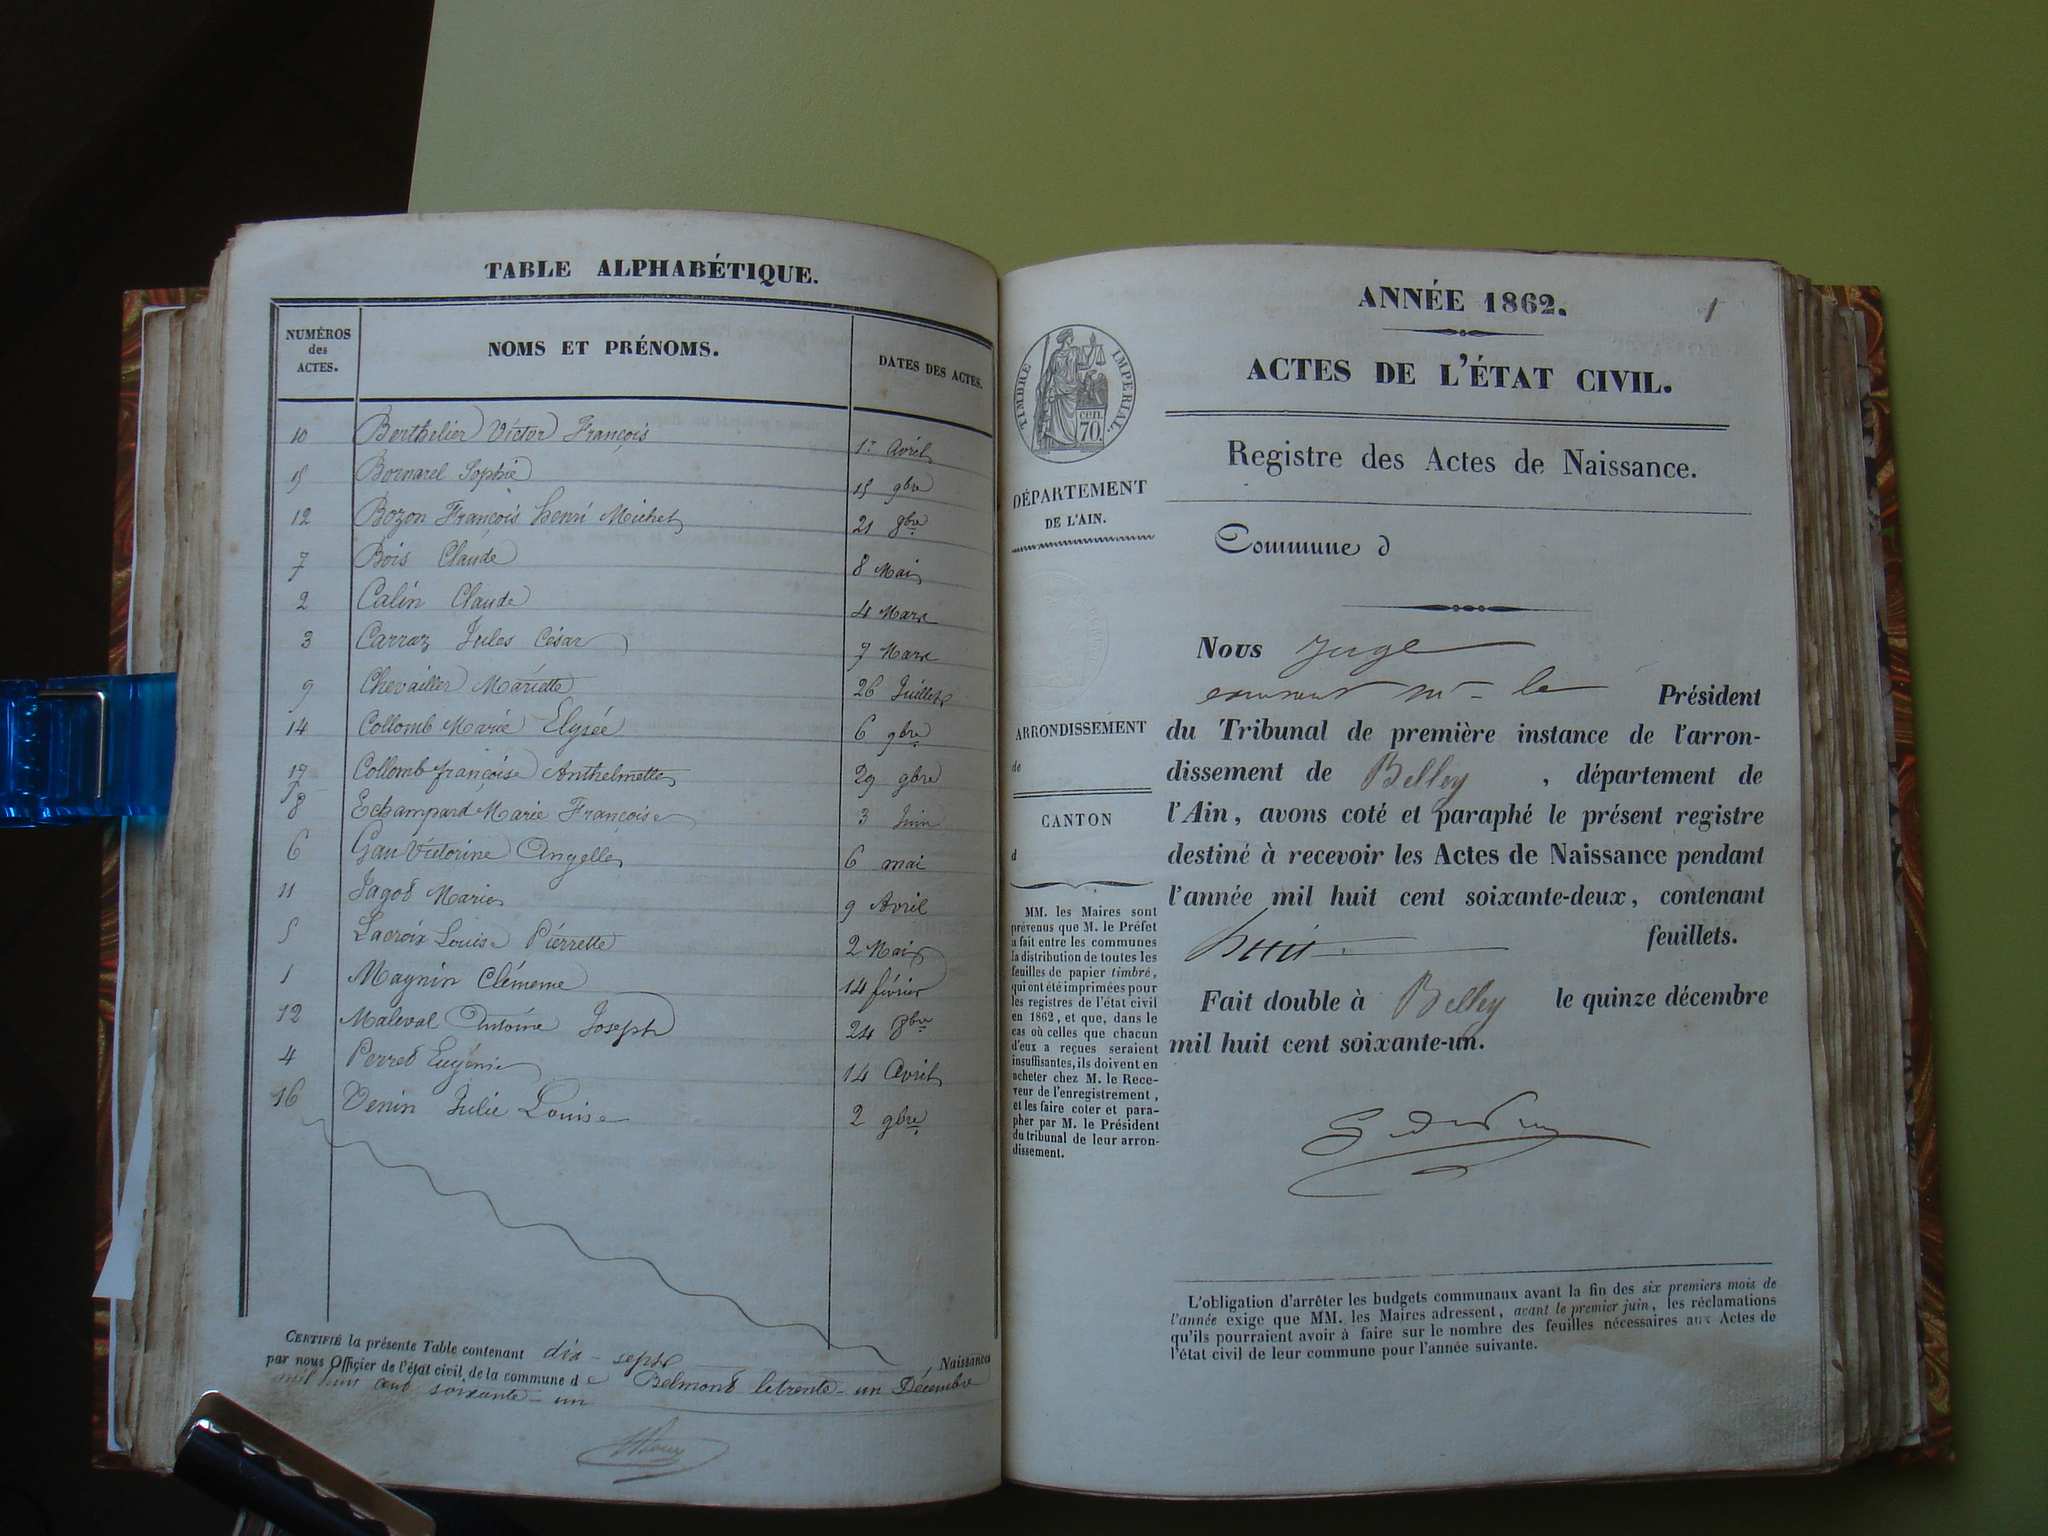 TABLE ALPHABÉTIQUE.
NUMÉROS des ACTES. NOMS ET PRÉNOMS. DATES DES ACTES.
10 Berthelier Victor François 1er Avril
15 Bornarel Sophie 15 9bre
12 Bozon François henri Michel 21 8bre
7 Bois Claude 8 Mai
2 Calin Claude 4 Mars
3 Carraz Jules César 7 Mars
9 Chevailler Mariette 26 Juillet
14 Collomb Marie Elysée 6 9bre
17 Collomb françoise Anthelmette 29 9bre
8 Echampard Marie Françoise 3 Juin
6 Gau Victorine Angelle 6 mai
11 Jagot Marie 9 Avril
5 Lacroix Louise Pierrette 2 Mai
1 Magnin Clémence 14 février
12 Maleval Antoine Joseph 24 8bre
4 Perret Eugénie 14 Avril
16 Venin Julie Louise 2 9bre
CERTIFIÉ la présente Table contenant dix-sept Naissances
par nous Officier de l'état civil, de la commune de Belmont le trente-un Décembre
mil huit cent soixante-un
ANNÉE 1862. 1
ACTES DE L'ÉTAT CIVIL.
Registre des Actes de Naissance.
TIMBRE IMPÉRIAL.
cen.
70.
DÉPARTEMENT
DE L'AIN.
Commune d
ARRONDISSEMENT
de
CANTON
d
MM. les Maires sont
prévenus que M. le Préfet
a fait entre les communes
la distribution de toutes les
feuilles de papier timbré,
qui ont été imprimées pour
les registres de l'état civil
en 1862, et que, dans le
cas où celles que chacun
d'eux a reçues seraient
insuffisantes, ils doivent en
acheter chez M. le Rece-
veur de l'enregistrement,
et les faire coter et para-
pher par M. le Président
du tribunal de leur arron-
dissement.
Nous Juge
mr le Président
du Tribunal de première instance de l'arron-
dissement de Belley, département de
l'Ain, avons coté et paraphé le présent registre
destiné à recevoir les Actes de Naissance pendant
l'année mil huit cent soixante-deux, contenant
huit feuillets.
Fait double à Belley le quinze décembre
mil huit cent soixante-un.
L'obligation d'arrêter les budgets communaux avant la fin des six premiers mois de
l'année exige que MM. les Maires adressent, avant le premier juin, les réclamations
qu'ils pourraient avoir à faire sur le nombre des feuilles nécessaires aux Actes de
l'état civil de leur commune pour l'année suivante.